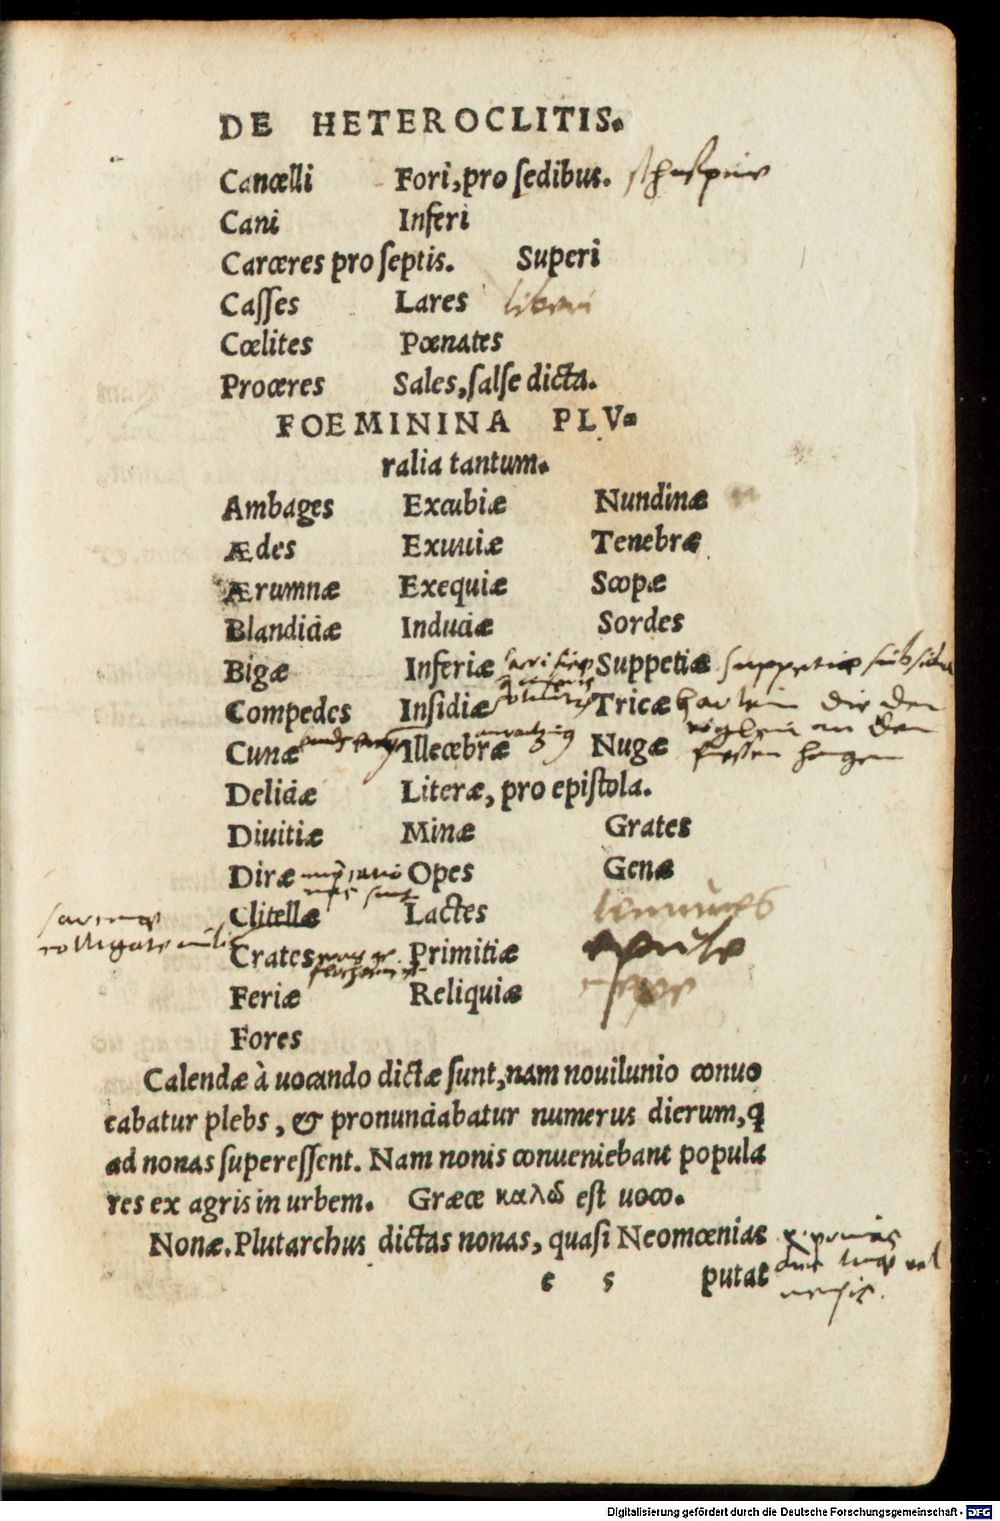 DE HETEROCLITIS.
Cancelli Fori, pro ſedibus.
Cani Inferi
Carceres pro ſeptis. Superi
Caſſes Lares liberi
Cœlites Pœnates
Proceres Sales, ſalſe dicta.
FOEMININA PLV-
ralia tantum.
Ambages Excubiæ Nundinæ
Ædes Exuuiæ Tenebræ
Ærumnæ Exequiæ Scopæ
Blandiciæ Induciæ Sordes
Bigæ Inferiæ Suppetiæ suppetiæ
Compedes Inſidiæ Tricæ die den
Cunæ Illecebræ Nugæ an den
Deliciæ Literæ, pro epiſtola.
Diuitiæ Minæ Grates
Diræ Opes Genæ
Clitellæ Lactes lemures
Crates Primitiæ
Feriæ Reliquiæ
Fores
Calendæ à uocando dictæ ſunt, nam nouilunio conuo
cabatur plebs, & pronunciabatur numerus dierum, q
ad nonas ſupereſſent. Nam nonis conueniebant popula
res ex agris in urbem. Græce καλῶ eſt uoco.
Nonæ. Plutarchus dictas nonas, quaſi Neomœnias
e 5 putat
Digitalisierung gefördert durch die Deutsche Forschungsgemeinschaft - DFG